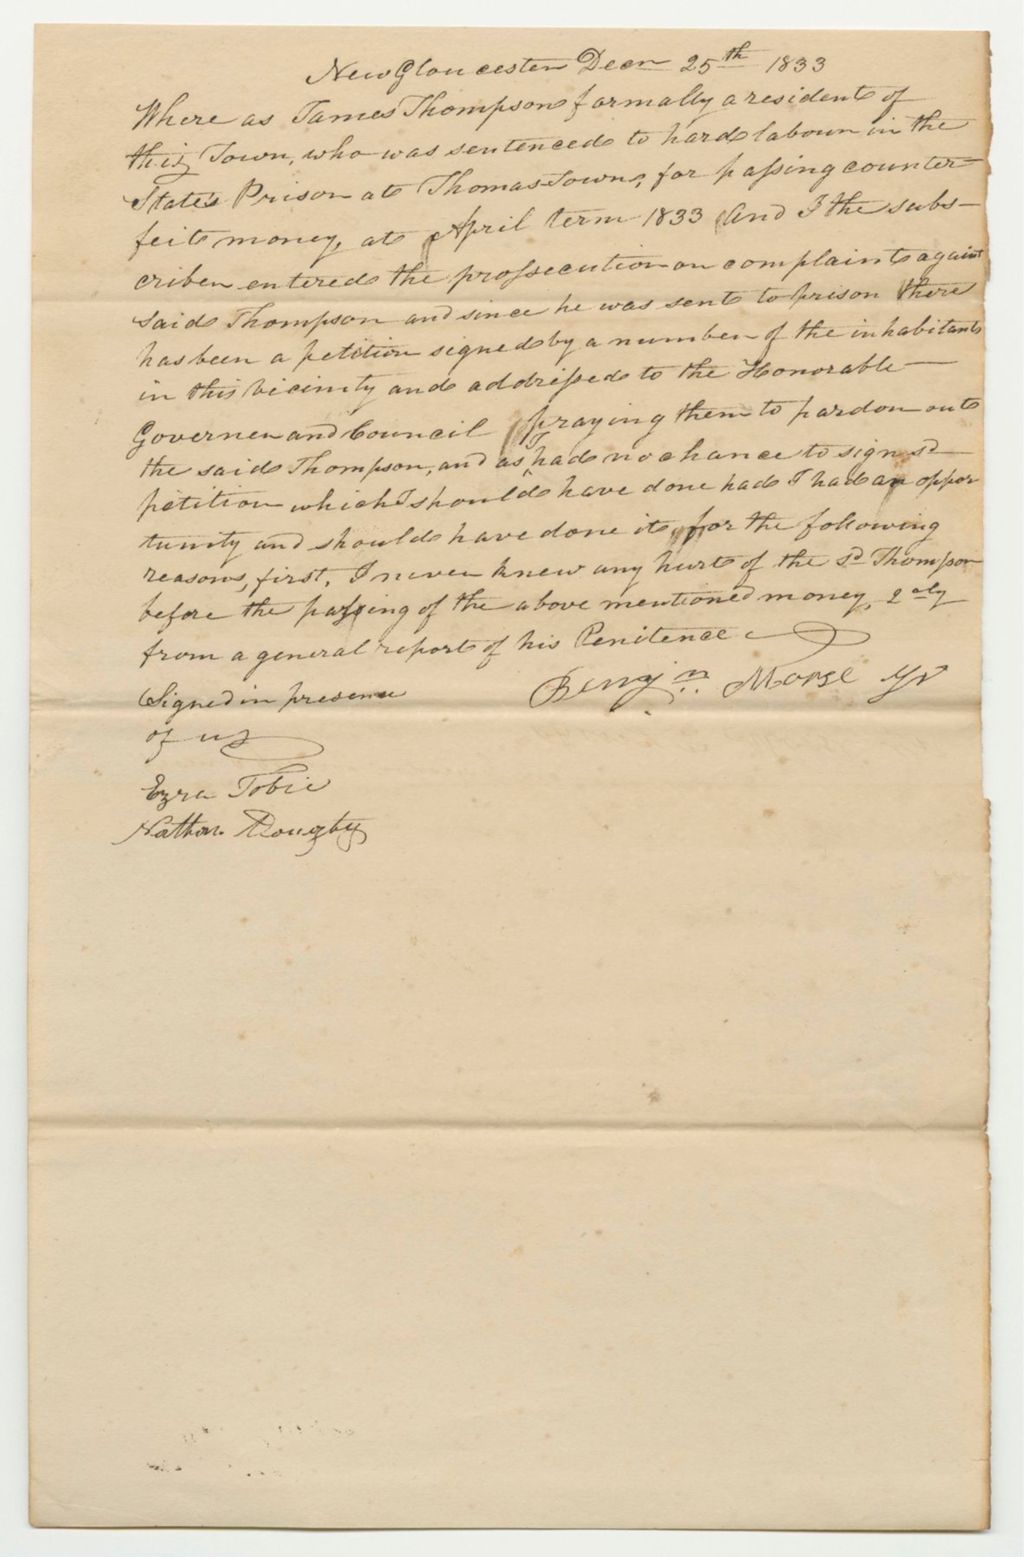 New Gloucester Decr 25th 1833
Where as James Thompson formally a resident of
this Town, who was sentenced to hard labour in the
State's Prison at Thomastown, for passing counter-
feit money, at April term 1833 And I the subs-
criber entered the prossecution on complaint against
said Thompson and since he was sent to prison there
has been a petition signed by a number of the inhabitants
in this vicinity and addressed to the Honorable
Governer and Council praying them to pardon out
the said Thompson, and as I had no chance to sign sd
petition which I should have done had I had an oppor
tunity and should have done it, for the following
reasons, first, I never knew any hurt of the sd Thompson
before the passing of the above mentioned money, 2aly
from a general report of his Penitence
Benjn Morse Jr
Signed in presence
of us
Ezra Tobie
Nathan